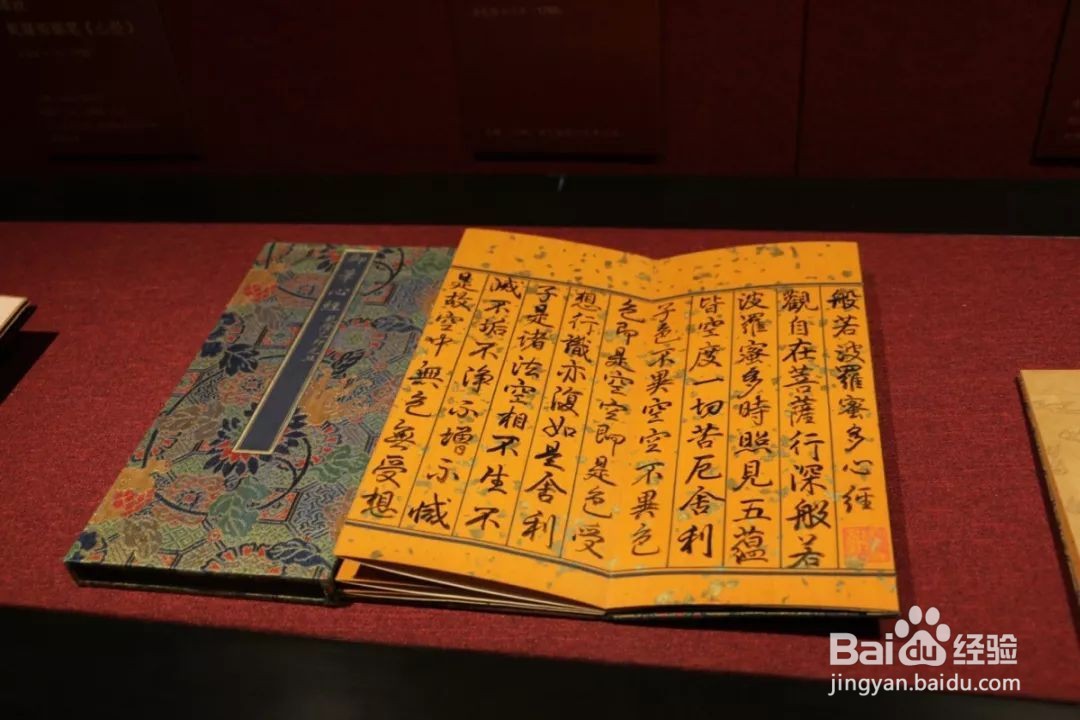 般若波羅蜜多心經
觀自在菩薩行深般若
波羅蜜多時照見五蘊
皆空度一切苦厄舍利
子色不異空空不異色
色即是空空即是色受
想行識亦復如是舍利
子是诸法空相不生不
滅不垢不淨不增不減
是故空中無色無受想
心經
Bai du 经验
jingyan.baidu.com